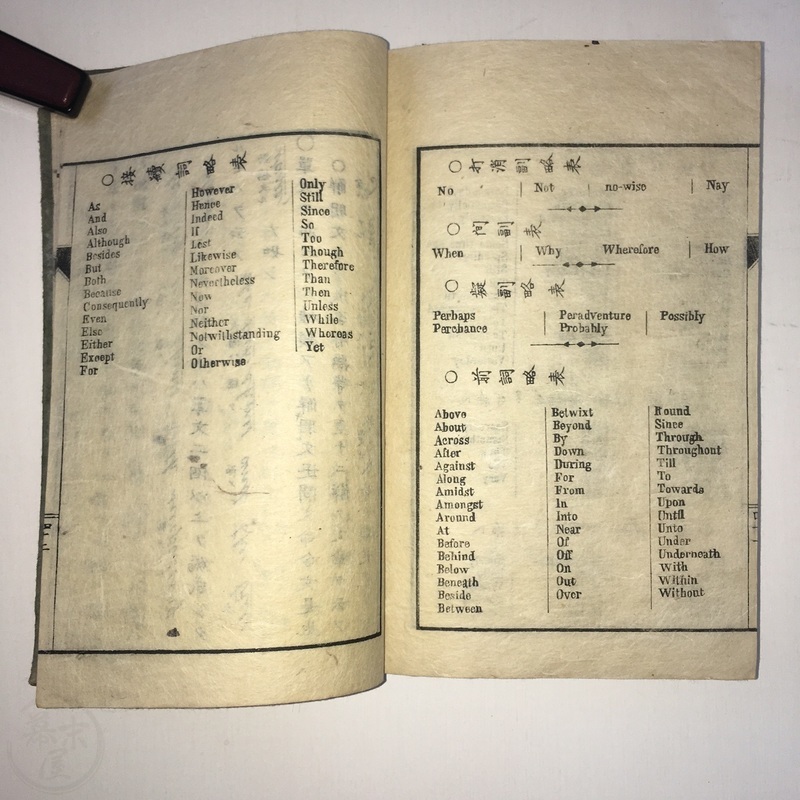 ○打消副略表
No | Not | no-wise | Nay
○何副表
When | Why Wherefore | How
○疑副略表
Perhaps
Perchance
Peradventure
Probably
Possibly
○前詞略表
Above
About
Across
After
Against
Along
Amidst
Amongst
Around
At
Before
Behind
Below
Beneath
Beside
Between
Betwixt
Beyond
By
Down
During
For
From
In
Into
Near
Of
Off
On
Out
Over
Round
Since
Through
Throughout
Till
To
Towards
Upon
Until
Unto
Under
Underneath
With
Within
Without
○接續詞略表
As
And
Also
Although
Besides
But
Both
Because
Consequently
Even
Else
Either
Except
For
However
Hence
Indeed
If
Lest
Likewise
Moreover
Nevertheless
Now
Nor
Neither
Notwithstanding
Or
Otherwise
Only
Still
Since
So
Too
Though
Therefore
Than
Then
Unless
While
Whereas
Yet
幕末屋